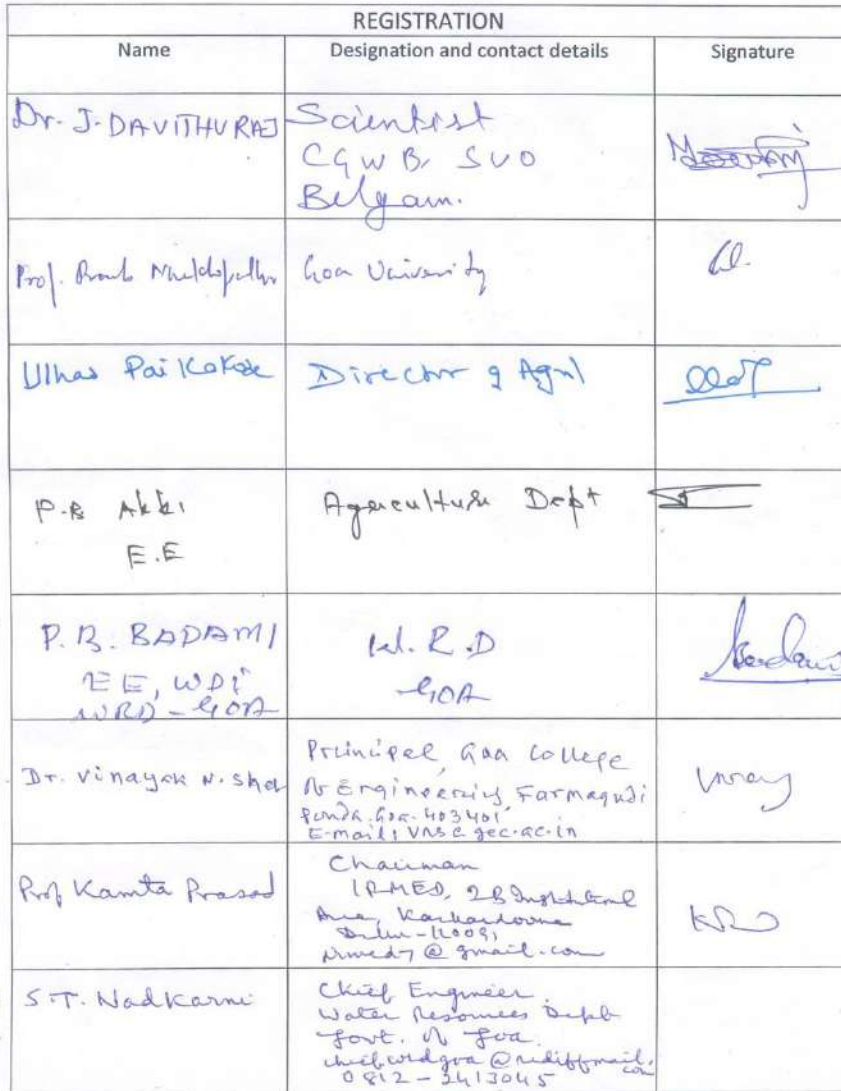 REGISTRATION
Name Designation and contact details Signature
Dr. J. DAVITHURAJ Scientist
CGWB, SUO
Belgam.
Prof. Goa University
Ulhas Pai Kakode Director of Agri
P.B Akki Agriculture Dept
E.E
P.B. BADAMI W.R.D
EE, WDI GOA
WRD - GOA
Dr. Vinayak N. Shet Principal, Goa College
of Engineering Farmagudi
Ponda. Goa. 403401,
E-mail: vns@gec.ac.in
Prof Kamta Prasad Chairman
IRMED, 2B Institutional
Area, Karkardooma
@gmail.com
S.T. Nadkarni Chief Engineer
Water Resources Deptt
Govt. of Goa.
chiefwrdgoa@rediffmail.com
0812-2413045